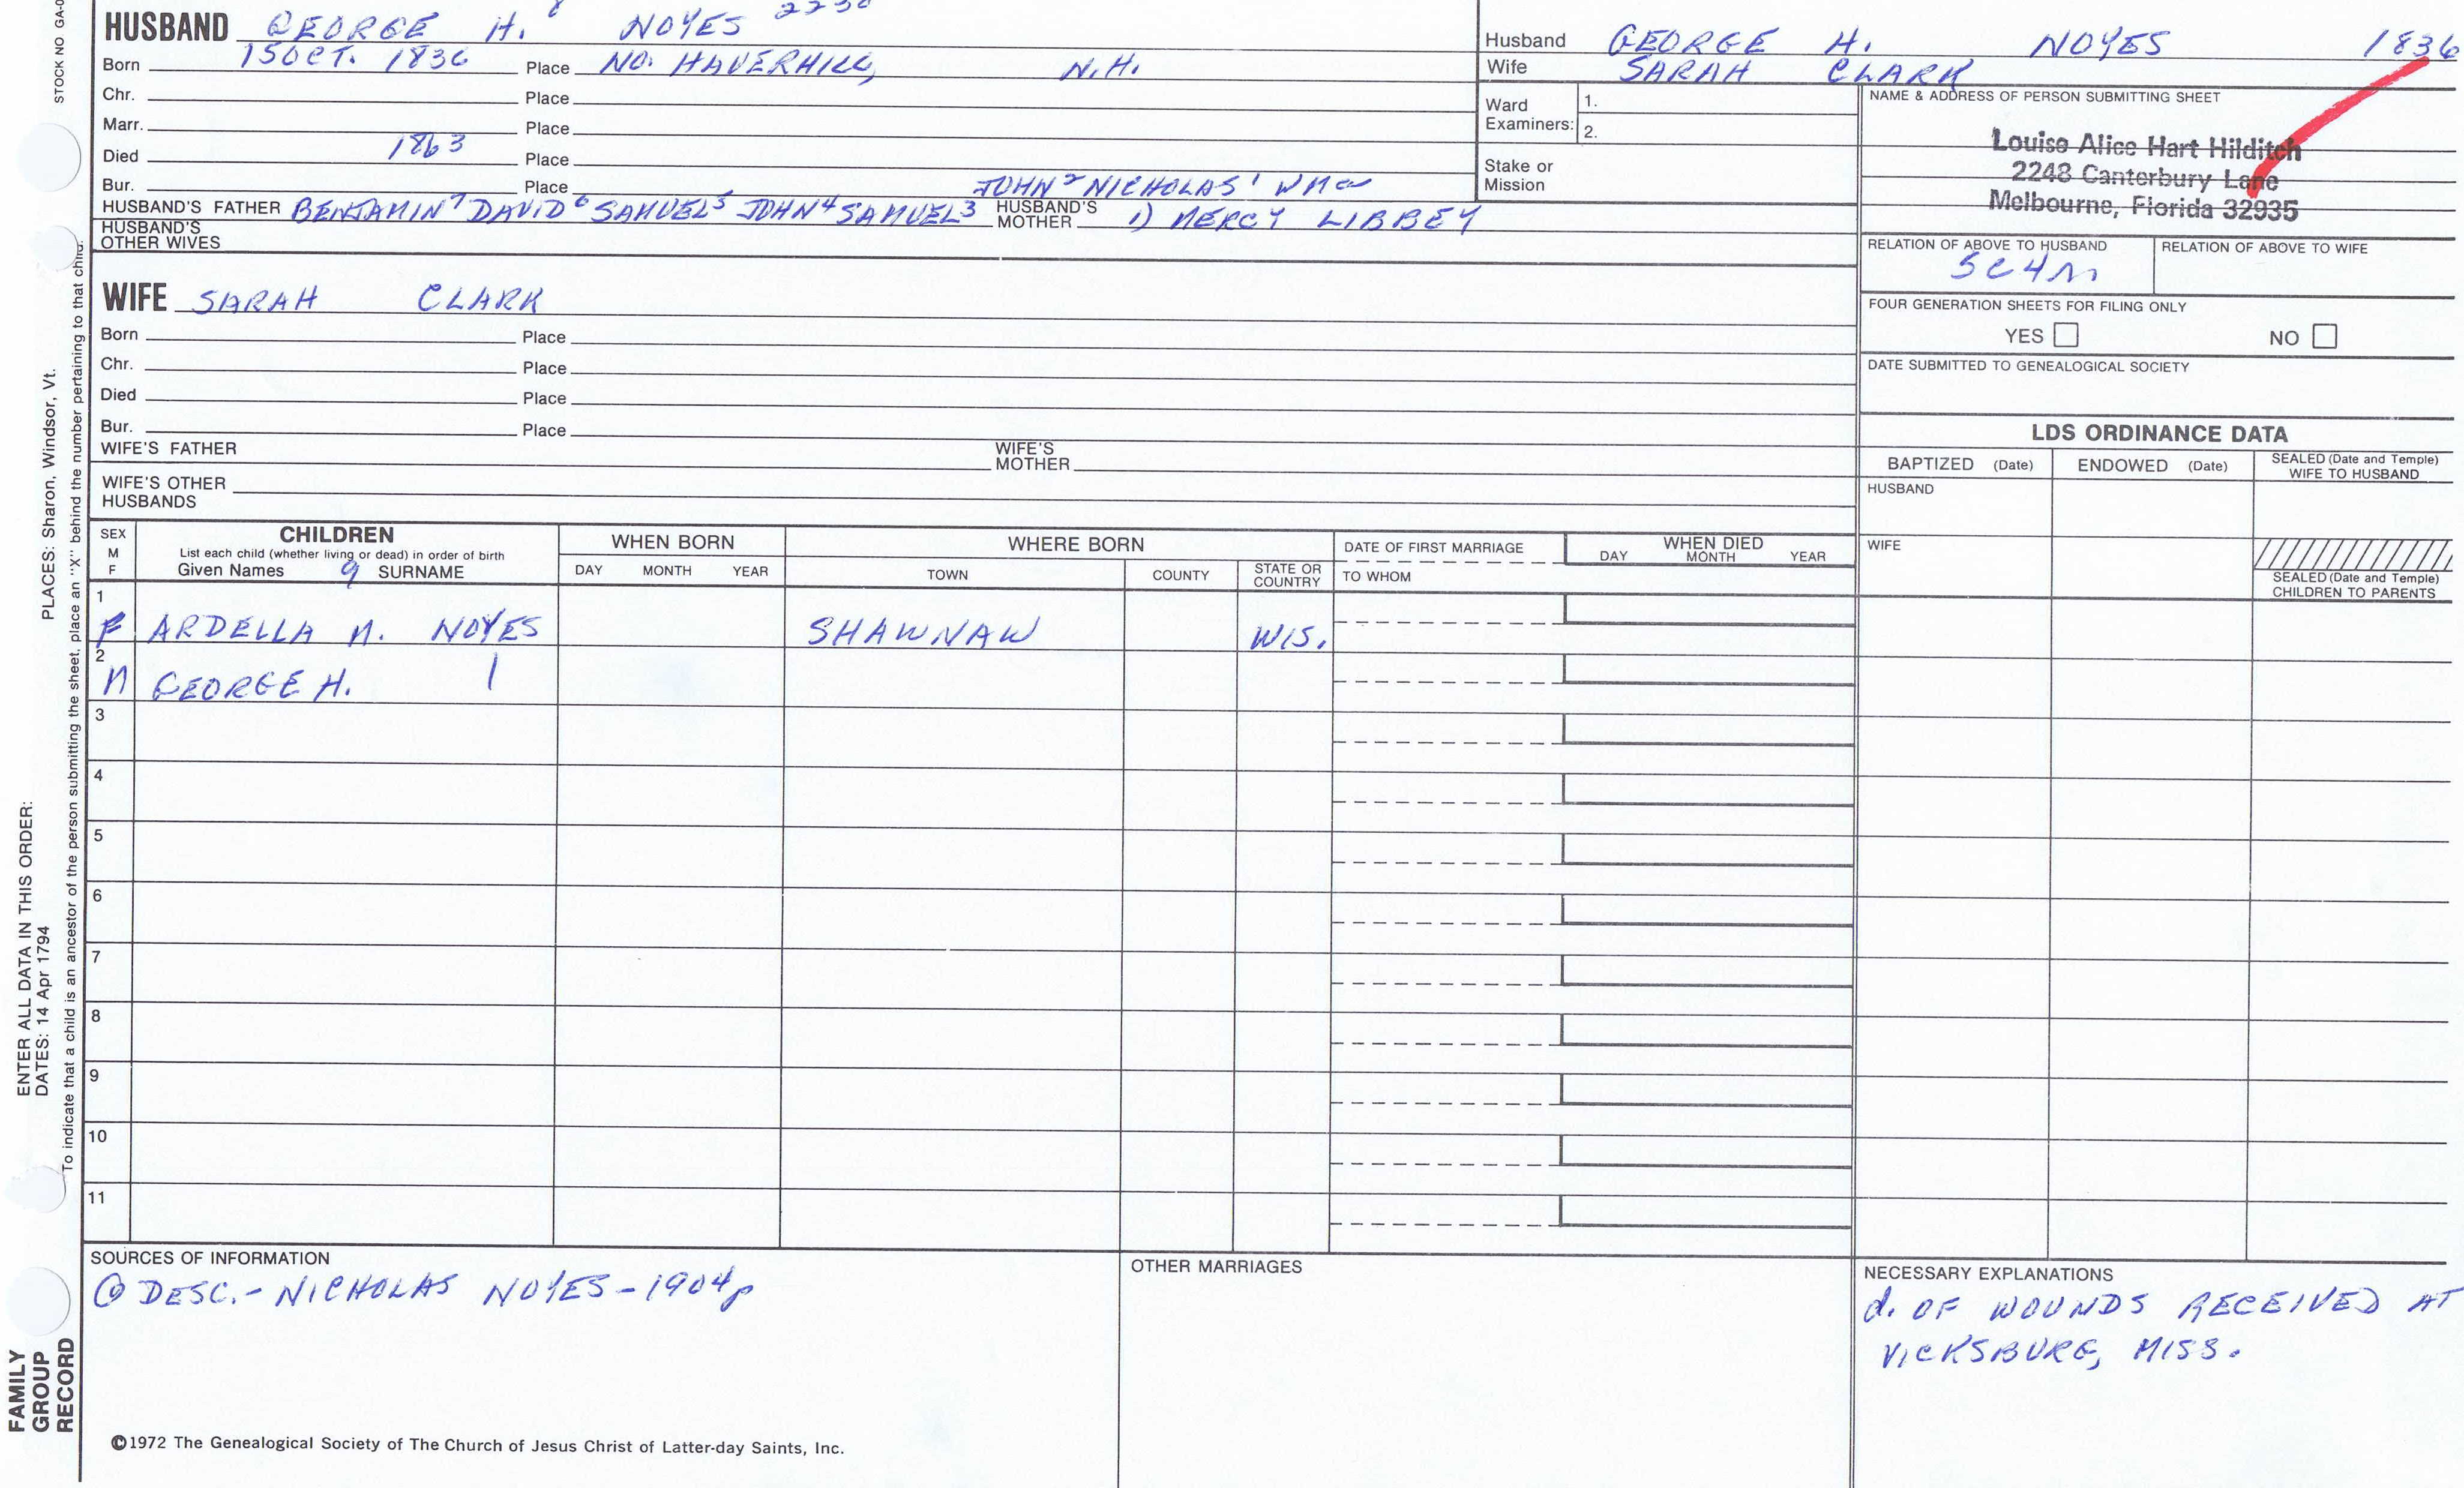 STOCK NO GA-0
HUSBAND GEORGE H. 8 NOYES 2230
Born 15 OCT. 1836 Place NO. HAVERHILL, N.H.
Chr. Place
Marr. Place
Died 1863 Place
Bur. Place JOHN 2 NICHOLAS 1 WM
HUSBAND'S FATHER BENJAMIN 7 DAVID 6 SAMUEL 5 JOHN 4 SAMUEL 3 HUSBAND'S MOTHER 1) MERCY LIBBEY
HUSBAND'S OTHER WIVES
Husband GEORGE H. NOYES 1836
Wife SARAH CLARK
Ward Examiners: 1.
2.
Stake or Mission
NAME & ADDRESS OF PERSON SUBMITTING SHEET
Louise Alice Hart Hilditch
2248 Canterbury Lane
Melbourne, Florida 32935
RELATION OF ABOVE TO HUSBAND RELATION OF ABOVE TO WIFE
5C4M
FOUR GENERATION SHEETS FOR FILING ONLY
YES NO
DATE SUBMITTED TO GENEALOGICAL SOCIETY
WIFE SARAH CLARK
Born Place
Chr. Place
Died Place
Bur. Place
WIFE'S FATHER WIFE'S MOTHER
WIFE'S OTHER HUSBANDS
LDS ORDINANCE DATA
BAPTIZED (Date) ENDOWED (Date) SEALED (Date and Temple) WIFE TO HUSBAND
HUSBAND
WIFE
SEALED (Date and Temple) CHILDREN TO PARENTS
SEX M F
CHILDREN
List each child (whether living or dead) in order of birth
Given Names SURNAME
WHEN BORN
DAY MONTH YEAR
WHERE BORN
TOWN COUNTY STATE OR COUNTRY
DATE OF FIRST MARRIAGE
TO WHOM
WHEN DIED
DAY MONTH YEAR
1
F ARDELLA M. NOYES SHAWNAW WIS.
2
M GEORGE H. |
3
4
5
6
7
8
9
10
11
SOURCES OF INFORMATION
DESC.- NICHOLAS NOYES - 1904
OTHER MARRIAGES
NECESSARY EXPLANATIONS
d. OF WOUNDS RECEIVED AT
VICKSBURG, MISS.
©1972 The Genealogical Society of The Church of Jesus Christ of Latter-day Saints, Inc.
FAMILY
GROUP
RECORD
ENTER ALL DATA IN THIS ORDER:
DATES: 14 Apr 1794
PLACES: Sharon, Windsor, Vt.
To indicate that a child is an ancestor of the person submitting the sheet, place an "X" behind the number pertaining to that child.